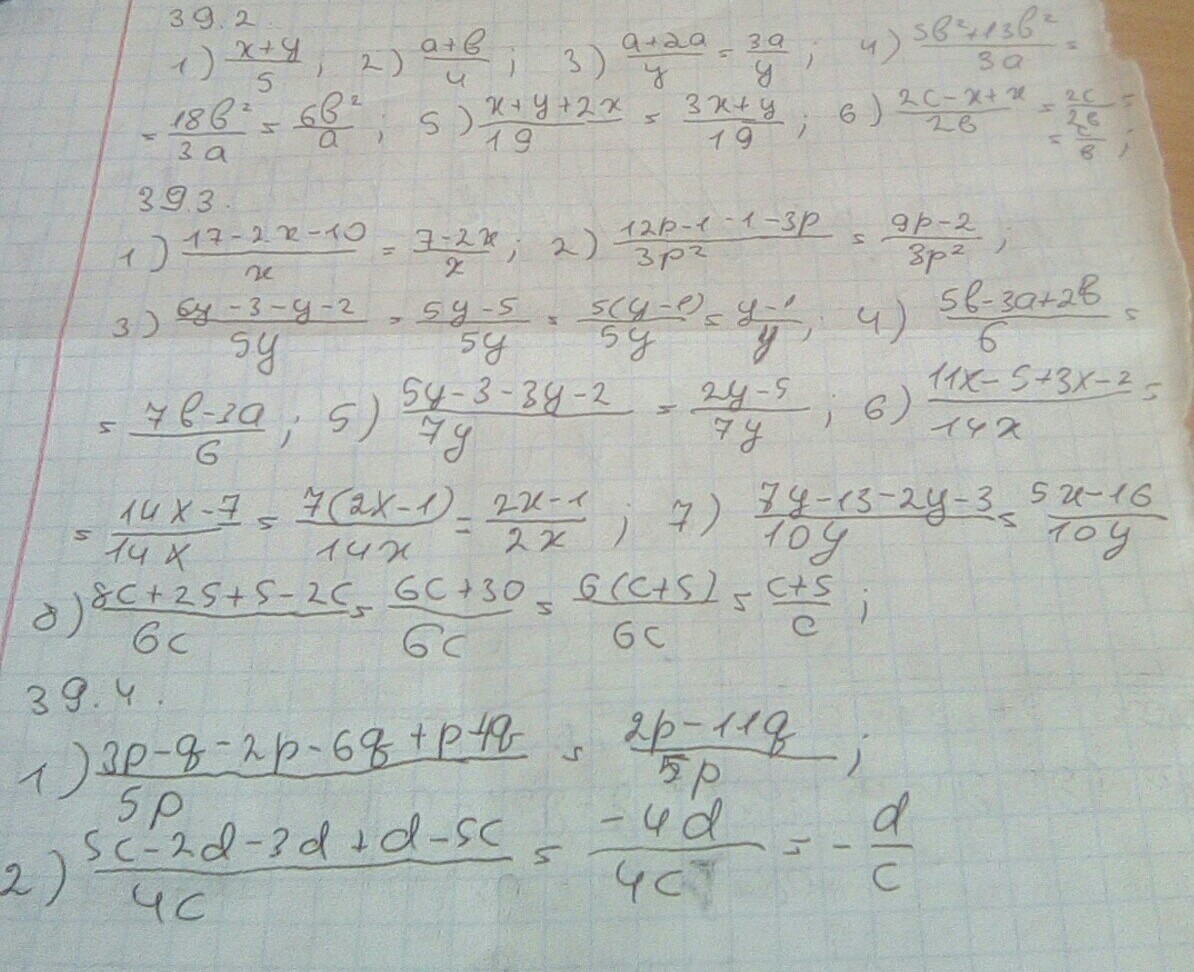 39.2.
1) (x+y)/5; 2) (a+b)/4; 3) (a+2a)/y = 3a/y; 4) (5b²+13b²)/3a =
= 18b²/3a = 6b²/a; 5) (x+y+2x)/19 = (3x+y)/19; 6) (2c-x+x)/2b = 2c/2b = = c/b;
39.3.
1) (17-2x-10)/x = (7-2x)/x; 2) (12p-1-1-3p)/3p² = (9p-2)/3p²;
3) (6y-3-y-2)/5y = (5y-5)/5y = 5(y-1)/5y = (y-1)/y; 4) (5b-3a+2b)/6 =
= (7b-3a)/6; 5) (5y-3-3y-2)/7y = (2y-5)/7y; 6) (11x-5+3x-2)/14x =
= (14x-7)/14x = 7(2x-1)/14x = (2x-1)/2x; 7) (7y-13-2y-3)/10y = (5x-16)/10y
8) (8c+25+5-2c)/6c = (6c+30)/6c = 6(c+5)/6c = (c+5)/c;
39.4.
1) (3p-q-2p-6q+p-4q)/5p = (2p-11q)/5p;
2) (5c-2d-3d+d-5c)/4c = -4d/4c = -d/c